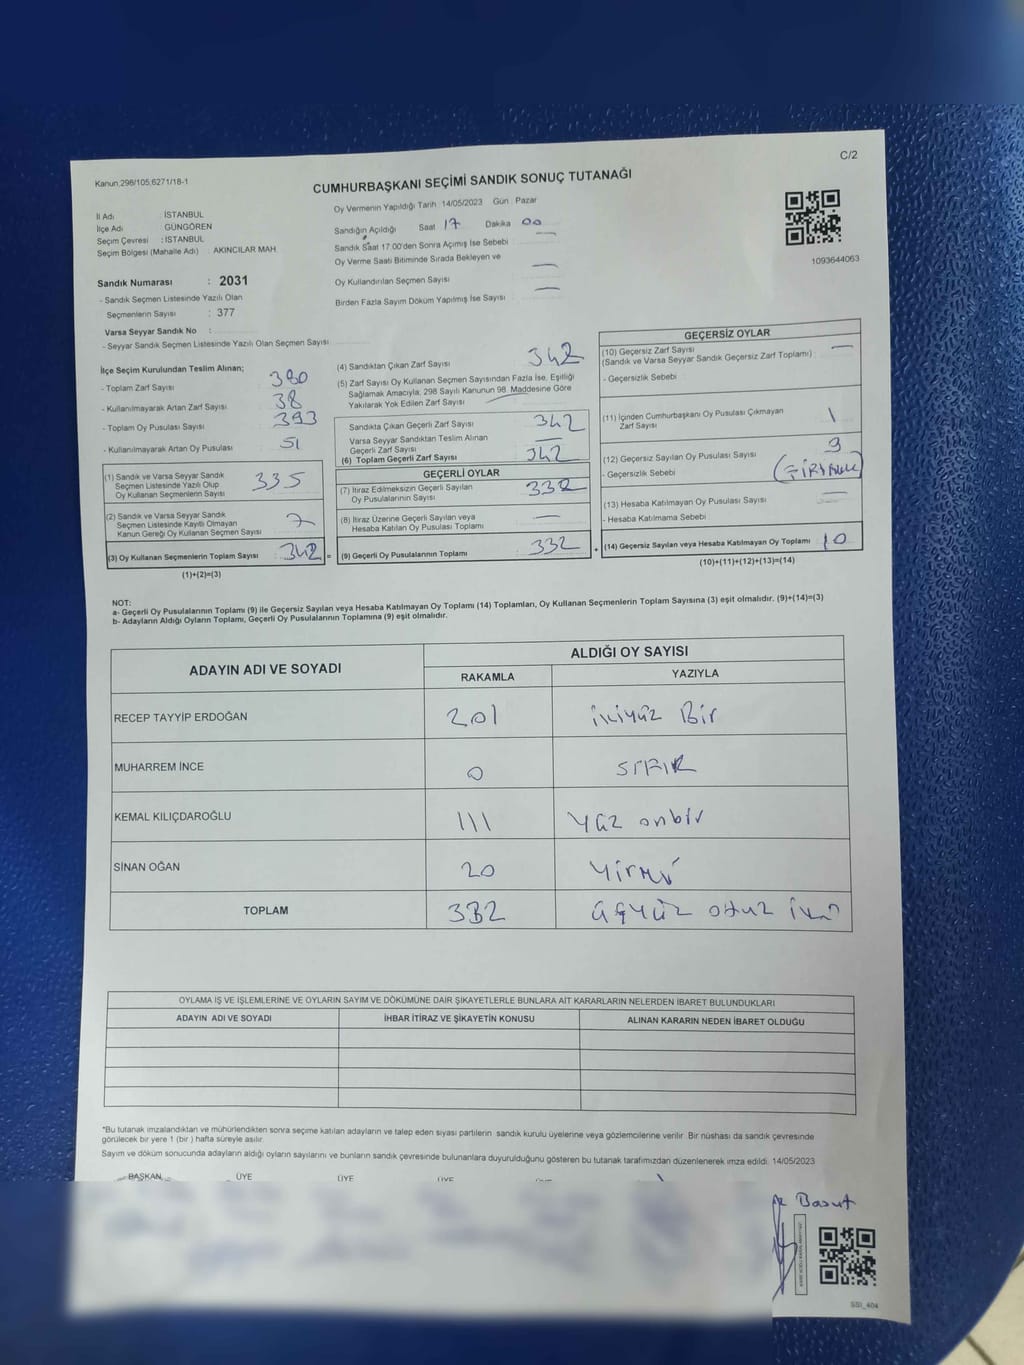 C/2
Kanun;298/105;6271/18-1
CUMHURBAŞKANI SEÇİMİ SANDIK SONUÇ TUTANAĞI
İl Adı : İSTANBUL
İlçe Adı : GÜNGÖREN
Seçim Çevresi : İSTANBUL
Seçim Bölgesi (Mahalle Adı) : AKINCILAR MAH.
Oy Vermenin Yapıldığı Tarih 14/05/2023 Gün Pazar
Sandığın Açıldığı Saat 17 Dakika 00
Sandık Saat 17:00'den Sonra Açımış İse Sebebi —
Oy Verme Saati Bitiminde Sırada Bekleyen ve
Oy Kullandırılan Seçmen Sayısı —
Birden Fazla Sayım Döküm Yapılmış İse Sayısı —
1093644063
Sandık Numarası : 2031
- Sandık Seçmen Listesinde Yazılı Olan
Seçmenlerin Sayısı : 377
Varsa Seyyar Sandık No :
- Seyyar Sandık Seçmen Listesinde Yazılı Olan Seçmen Sayısı
İlçe Seçim Kurulundan Teslim Alınan;
- Toplam Zarf Sayısı 380
- Kullanılmayarak Artan Zarf Sayısı 38
- Toplam Oy Pusulası Sayısı 393
- Kullanılmayarak Artan Oy Pusulası 51
(1) Sandık ve Varsa Seyyar Sandık
Seçmen Listesinde Yazılı Olup
Oy Kullanan Seçmenlerin Sayısı 335
(2) Sandık ve Varsa Seyyar Sandık
Seçmen Listesinde Kayıtlı Olmayan
Kanun Gereği Oy Kullanan Seçmen Sayısı 7
(3) Oy Kullanan Seçmenlerin Toplam Sayısı 342 =
(1)+(2)=(3)
(4) Sandıktan Çıkan Zarf Sayısı 342
(5) Zarf Sayısı Oy Kullanan Seçmen Sayısından Fazla İse, Eşitliği
Sağlamak Amacıyla, 298 Sayılı Kanunun 98. Maddesine Göre
Yakılarak Yok Edilen Zarf Sayısı —
Sandıkta Çıkan Geçerli Zarf Sayısı 342
Varsa Seyyar Sandıktan Teslim Alınan
Geçerli Zarf Sayısı —
(6) Toplam Geçerli Zarf Sayısı 342
GEÇERLİ OYLAR
(7) İtiraz Edilmeksizin Geçerli Sayılan
Oy Pusulalarının Sayısı 332
(8) İtiraz Üzerine Geçerli Sayılan veya
Hesaba Katılan Oy Pusulası Toplamı —
(9) Geçerli Oy Pusulalarının Toplamı 332 +
GEÇERSİZ OYLAR
(10) Geçersiz Zarf Sayısı —
(Sandık ve Varsa Seyyar Sandık Geçersiz Zarf Toplamı)
- Geçersizlik Sebebi
(11) İçinden Cumhurbaşkanı Oy Pusulası Çıkmayan
Zarf Sayısı 1
(12) Geçersiz Sayılan Oy Pusulası Sayısı 9
- Geçersizlik Sebebi
(13) Hesaba Katılmayan Oy Pusulası Sayısı —
- Hesaba Katılmama Sebebi
(14) Geçersiz Sayılan veya Hesaba Katılmayan Oy Toplamı 10
(10)+(11)+(12)+(13)=(14)
NOT:
a- Geçerli Oy Pusulalarının Toplamı (9) ile Geçersiz Sayılan veya Hesaba Katılmayan Oy Toplamı (14) Toplamları, Oy Kullanan Seçmenlerin Toplam Sayısına (3) eşit olmalıdır. (9)+(14)=(3)
b- Adayların Aldığı Oyların Toplamı, Geçerli Oy Pusulalarının Toplamına (9) eşit olmalıdır.
ADAYIN ADI VE SOYADI
ALDIĞI OY SAYISI
RAKAMLA YAZIYLA
RECEP TAYYİP ERDOĞAN 201 ikiyüz Bir
MUHARREM İNCE 0 SIFIR
KEMAL KILIÇDAROĞLU 111 yüz onbir
SİNAN OĞAN 20 yirmi
TOPLAM 332 üçyüz otuz iki
OYLAMA İŞ VE İŞLEMLERİNE VE OYLARIN SAYIM VE DÖKÜMÜNE DAİR ŞİKAYETLERLE BUNLARA AİT KARARLARIN NELERDEN İBARET BULUNDUKLARI
ADAYIN ADI VE SOYADI İHBAR İTİRAZ VE ŞİKAYETİN KONUSU ALINAN KARARIN NEDEN İBARET OLDUĞU
*Bu tutanak imzalandıktan ve mühürlendikten sonra seçime katılan adayların ve talep eden siyasi partilerin sandık kurulu üyelerine veya gözlemcilerine verilir. Bir nüshası da sandık çevresinde
görülecek bir yere 1 (bir ) hafta süreyle asılır.
Sayım ve döküm sonucunda adayların aldığı oyların sayılarını ve bunların sandık çevresinde bulunanlara duyurulduğunu gösteren bu tutanak tarafımızdan düzenlenerek imza edildi. 14/05/2023
BAŞKAN ÜYE ÜYE ÜYE
SSI_404